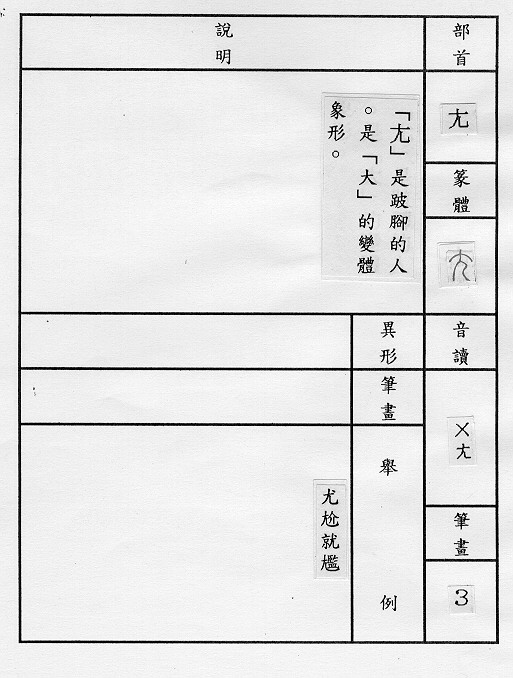 部首
尢
篆體
音讀
ㄨㄤ
筆畫
3
說明
「尢」是跛腳的人
。是「大」的變體
象形。
異形
筆畫
舉例
尤尬就尷